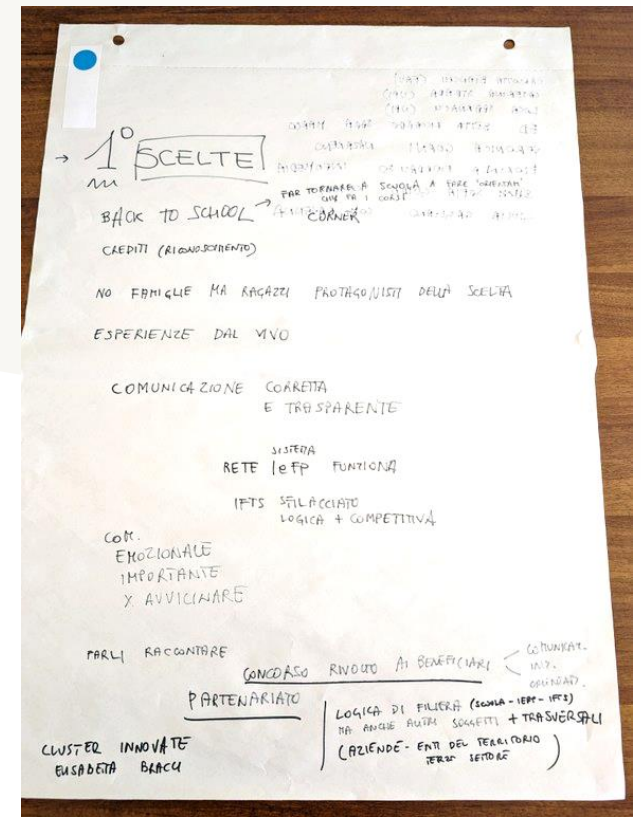 → 1° SCELTE
BACK TO SCHOOL → FAR TORNARE A SCUOLA A FARE "ORIENTAM"
CHI FA I CORSI
CORNER
CREDITI (RICONOSCIMENTO)
NO FAMIGLIE MA RAGAZZI PROTAGONISTI DELLA SCELTA
ESPERIENZE DAL VIVO
COMUNICAZIONE CORRETTA
E TRASPARENTE
SISTEMA
RETE IeFP FUNZIONA
IFTS SFILACCIATO
LOGICA + COMPETITIVA
COM.
EMOZIONALE
IMPORTANTE
X AVVICINARE
FARLI RACCONTARE
CONCORSO RIVOLTO AI BENEFICIARI
COMUNICAT.
INIZ.
PARTENARIATO
LOGICA DI FILIERA (SCUOLA - IEFP - IFTS)
MA ANCHE ALTRI SOGGETTI + TRASVERSALI
(AZIENDE - ENTI DEL TERRITORIO
TERZO SETTORE)
CLUSTER INNOVATE
ELISABETTA